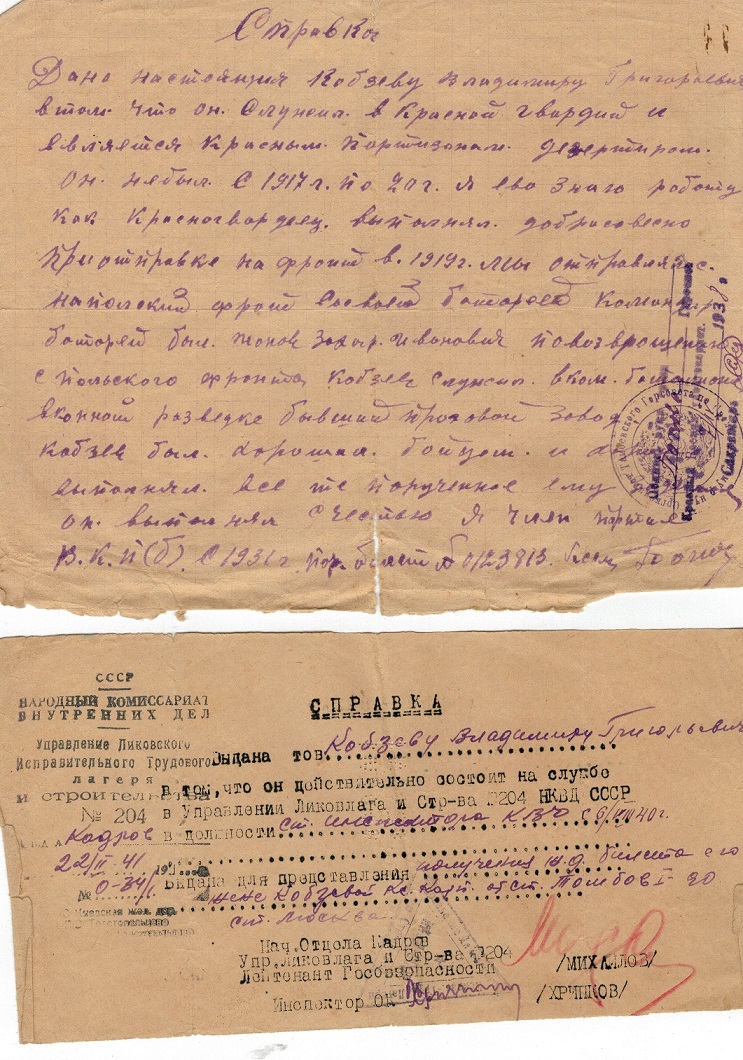 Справка
Дана настоящия Кобзеву Владимиру Григораевич
втом. что он. Служил. в Красной Гвардий и
евляетея Красным. портизоном. дезертиром.
он. небыл. С 1917 г. по 20 г. Я ево знаю работу
как Красногвардеец. выполнял. добрасовесно
приотправке на фронт в. 1919 г. мы отправляли с.
наполский фронт Соевой баторей Командир
баторей был. Жонов Захар. Иванович повозвращении
с польского фронта Кобзев служил. вком. батальоне
вконной разведке бывший проховой завод
Кобзев был. хорошим. бойцом. и
выполнял. все те порученное ему
он. выполнял счестью Я член партии
В.К.П(б) С 1931 г пар. билет № 0123813.
1938 г
Секретарь
СССР
НАРОДНЫЙ КОМИССАРИАТ
ВНУТРЕННИХ ДЕЛ
Управление Ликовского
Исправительно Трудового
лагеря
и строительства
№ 204
Кадров
22/II 41
№ 0-34/1
СПРАВКА
Выдана тов. Кобзеву Владимиру Григорьевич
в том, что он действительно состоит на службе
в Управлении Ликовлага и Стр-ва №204 НКВД СССР
в должности ст. инспектора КВО с 6/VIII 40 г.
Выдана для представления получения ж.д. билета его
жене Кобзевой от ст. Тамбов I до
ст. Москва.
Нач. Отдела Кадров
Упр. Ликовлага и Стр-ва №204
Лейтенант Госбезопасности /МИХАЙЛОВ/
Инспектор ОК /ХРИПКОВ/